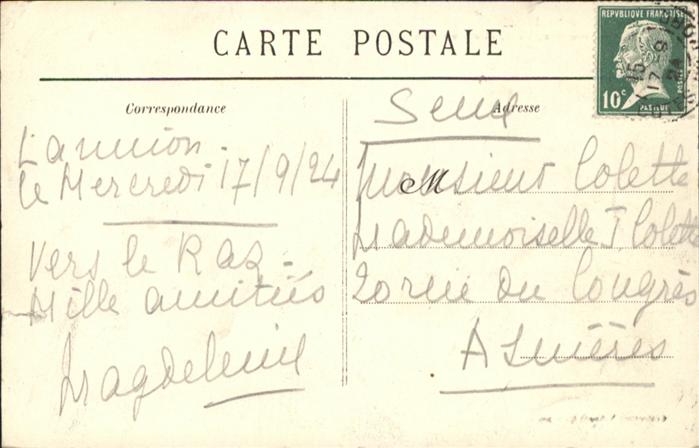 CARTE POSTALE
REPUBLIQUE FRANÇAISE
10c
PASTEUR
POSTES
Correspondance
Lannion.
le Mercredi 17/9/24
Vers le Raz -
Mille amitiés
Magdeleine
Adresse
Seine
Monsieur Colette
Mademoiselle T Colette
20 rue du Congrès
Asnières